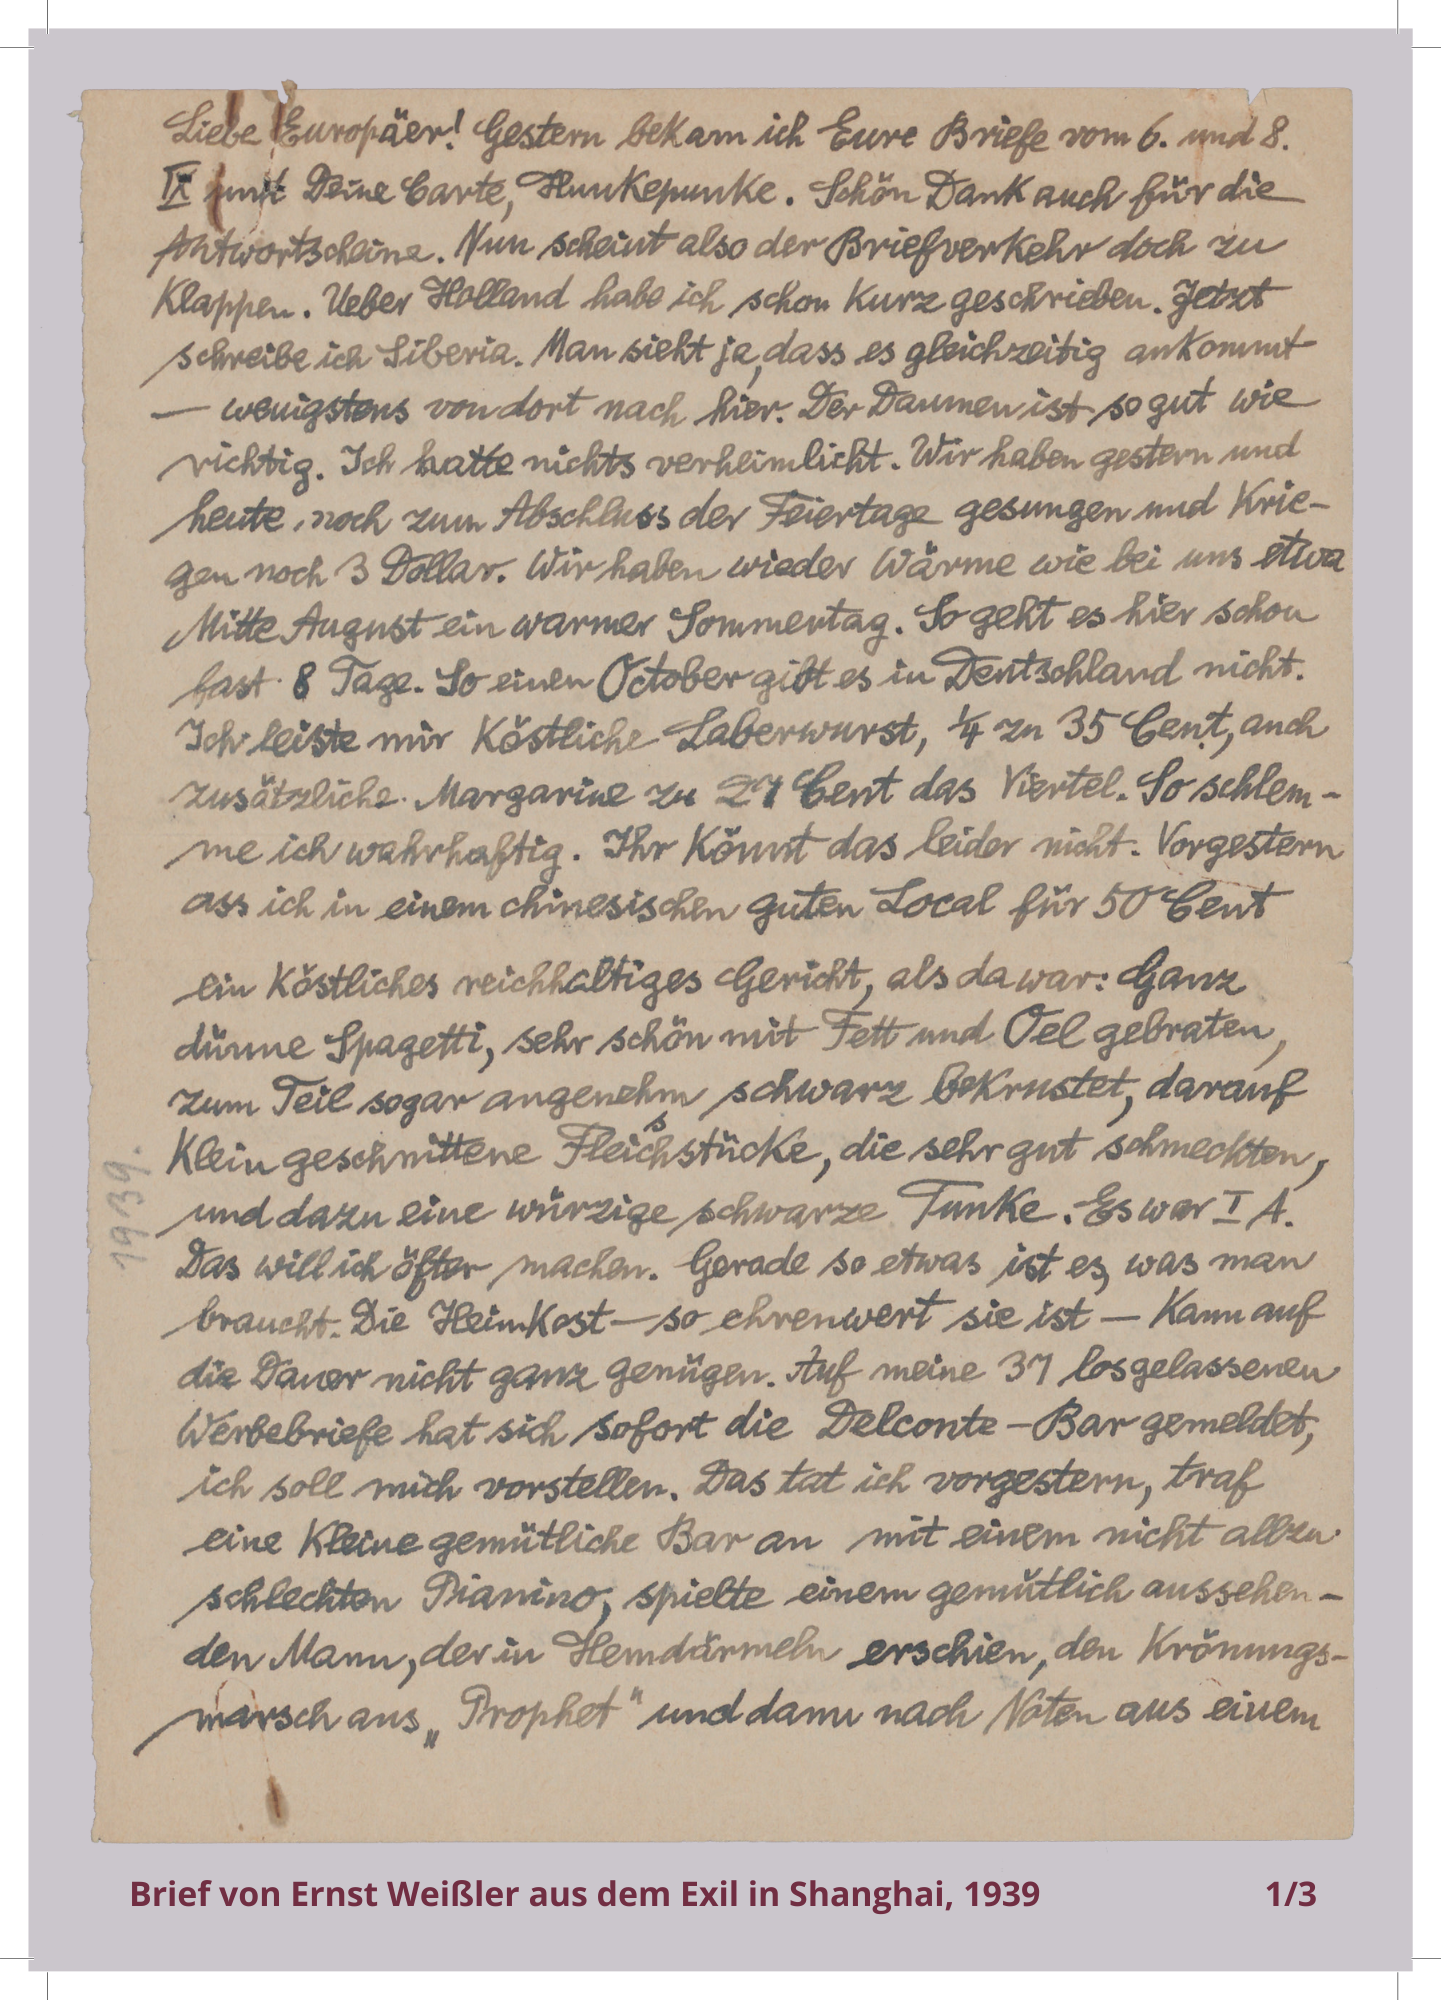 Liebe Europäer! Gestern bekam ich Eure Briefe vom 6. und 8.
IX und Deine Carte, Hunkepunke. Schön Dank auch für die
Antwortscheine. Nun scheint also der Briefverkehr doch zu
klappen. Ueber Holland habe ich schon kurz geschrieben. Jetzt
schreibe ich Siberia. Man sieht ja, dass es gleichzeitig ankommt
— wenigstens von dort nach hier. Der Daumen ist so gut wie
richtig. Ich hatte nichts verheimlicht. Wir haben gestern und
heute noch zum Abschluss der Feiertage gesungen und krie-
gen noch 3 Dollar. Wir haben wieder Wärme wie bei uns etwa
Mitte August ein warmer Sommertag. So geht es hier schon
fast 8 Tage. So einen October gibt es in Deutschland nicht.
Ich leiste mir köstliche Laberwurst, ¼ zu 35 Cent, auch
zusätzliche Margarine zu 27 Cent das Viertel. So schlem-
me ich wahrhaftig. Ihr könnt das leider nicht. Vorgestern
ass ich in einem chinesischen guten Local für 50 Cent
ein köstliches reichhaltiges Gericht, als da war: Ganz
dünne Spagetti, sehr schön mit Fett und Oel gebraten,
zum Teil sogar angenehm schwarz bekrustet, darauf
klein geschnittene Fleischstücke, die sehr gut schmeckten,
und dazu eine würzige schwarze Tunke. Es war I A.
Das will ich öfter machen. Gerade so etwas ist es, was man
braucht. Die Heimkost — so ehrenwert sie ist — kann auf
die Dauer nicht ganz genügen. Auf meine 37 losgelassenen
Werbebriefe hat sich sofort die Delconte-Bar gemeldet,
ich soll mich vorstellen. Das tat ich vorgestern, traf
eine kleine gemütliche Bar an mit einem nicht allzu
schlechten Pianino, spielte einem gemütlich aussehen-
den Mann, der in Hemdärmeln erschien, den Krönungs-
marsch aus „Prophet" und dann nach Noten aus einem
1939.
Brief von Ernst Weißler aus dem Exil in Shanghai, 1939
1/3